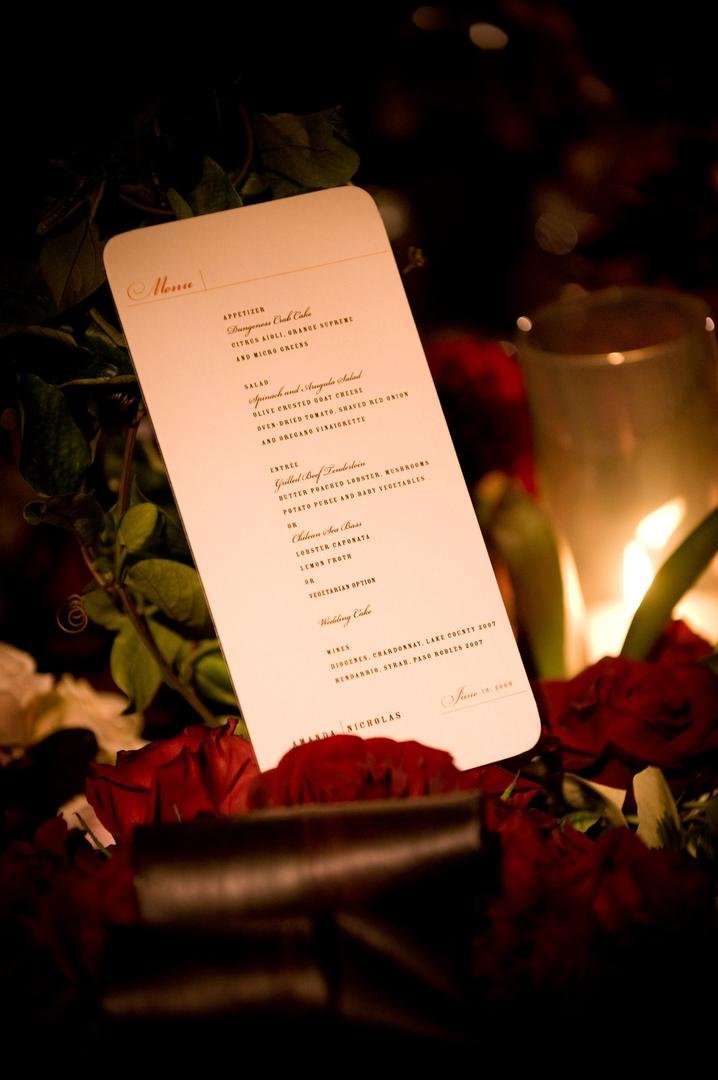 Menu
APPETIZER
Dungeness Crab Cake
CITRUS AIOLI, ORANGE SUPREME
AND MICRO GREENS
SALAD
Spinach and Arugula Salad
OLIVE CRUSTED GOAT CHEESE
OVEN-DRIED TOMATO, SHAVED RED ONION
AND OREGANO VINAIGRETTE
ENTRÉE
Grilled Beef Tenderloin
BUTTER POACHED LOBSTER, MUSHROOMS
POTATO PUREE AND BABY VEGETABLES
OR
Chilean Sea Bass
LOBSTER CAPONATA
LEMON FROTH
OR
VEGETARIAN OPTION
Wedding Cake
WINES
DIOGENES, CHARDONNAY, LAKE COUNTY 2007
RENDARRIO, SYRAH, PASO ROBLES 2007
June 19, 2009
AMANDA | NICHOLAS